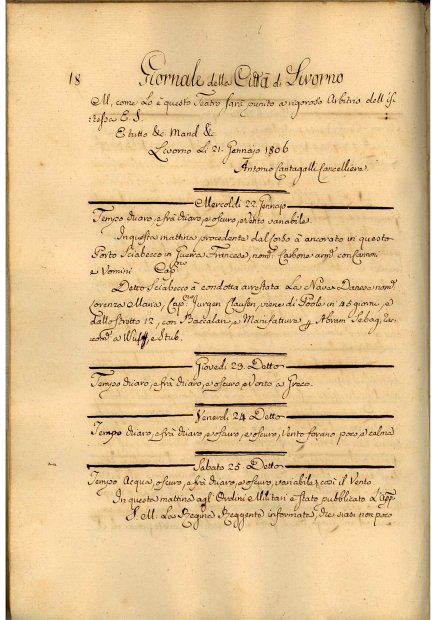 18 Giornale della Città di Livorno
M, come Lo è questo Teatro sarà punito a rigoroso Arbitrio dell' is-
:tessa E. S.
E tutto &c Mand &c
Livorno Li 21. Gennajo 1806
Antonio Cantagalli Cancelliere.
Mercoledì 22 Gennajo
Tempo chiaro, e frà chiaro, e oscuro, e Vento variabile.
In questa mattina procedente dal Corso è ancorato in questo
Porto Sciabecco in Guerra Francese, nom: Carbone arm: con Cannoni
e Uomini Cap:no
Detto Sciabecco à condotta arrestata La Nave Danese nom:
Lorenza Maria, Cap: Jurgen Clausen, viene di Poole in 45 giorni, e
dallo Stretto 12, con Baccalan, e Manifatture p Abram Sebag,
e Stub.
Giovedì 23. Detto
Tempo chiaro, e frà chiaro, e oscuro e Vento a Greco.
Venerdì 24 Detto
Tempo chiaro, e frà chiaro, e oscuro, e oscuro, Vento forano poco, e calma
Sabato 25. Detto
Tempo Acqua, oscuro, e frà chiaro, e oscuro, variabile; così il Vento.
In questa mattina agl' Ordini Militari è stato pubblicato L'app:
S. M. La Regina Reggente informata, che siasi non poco